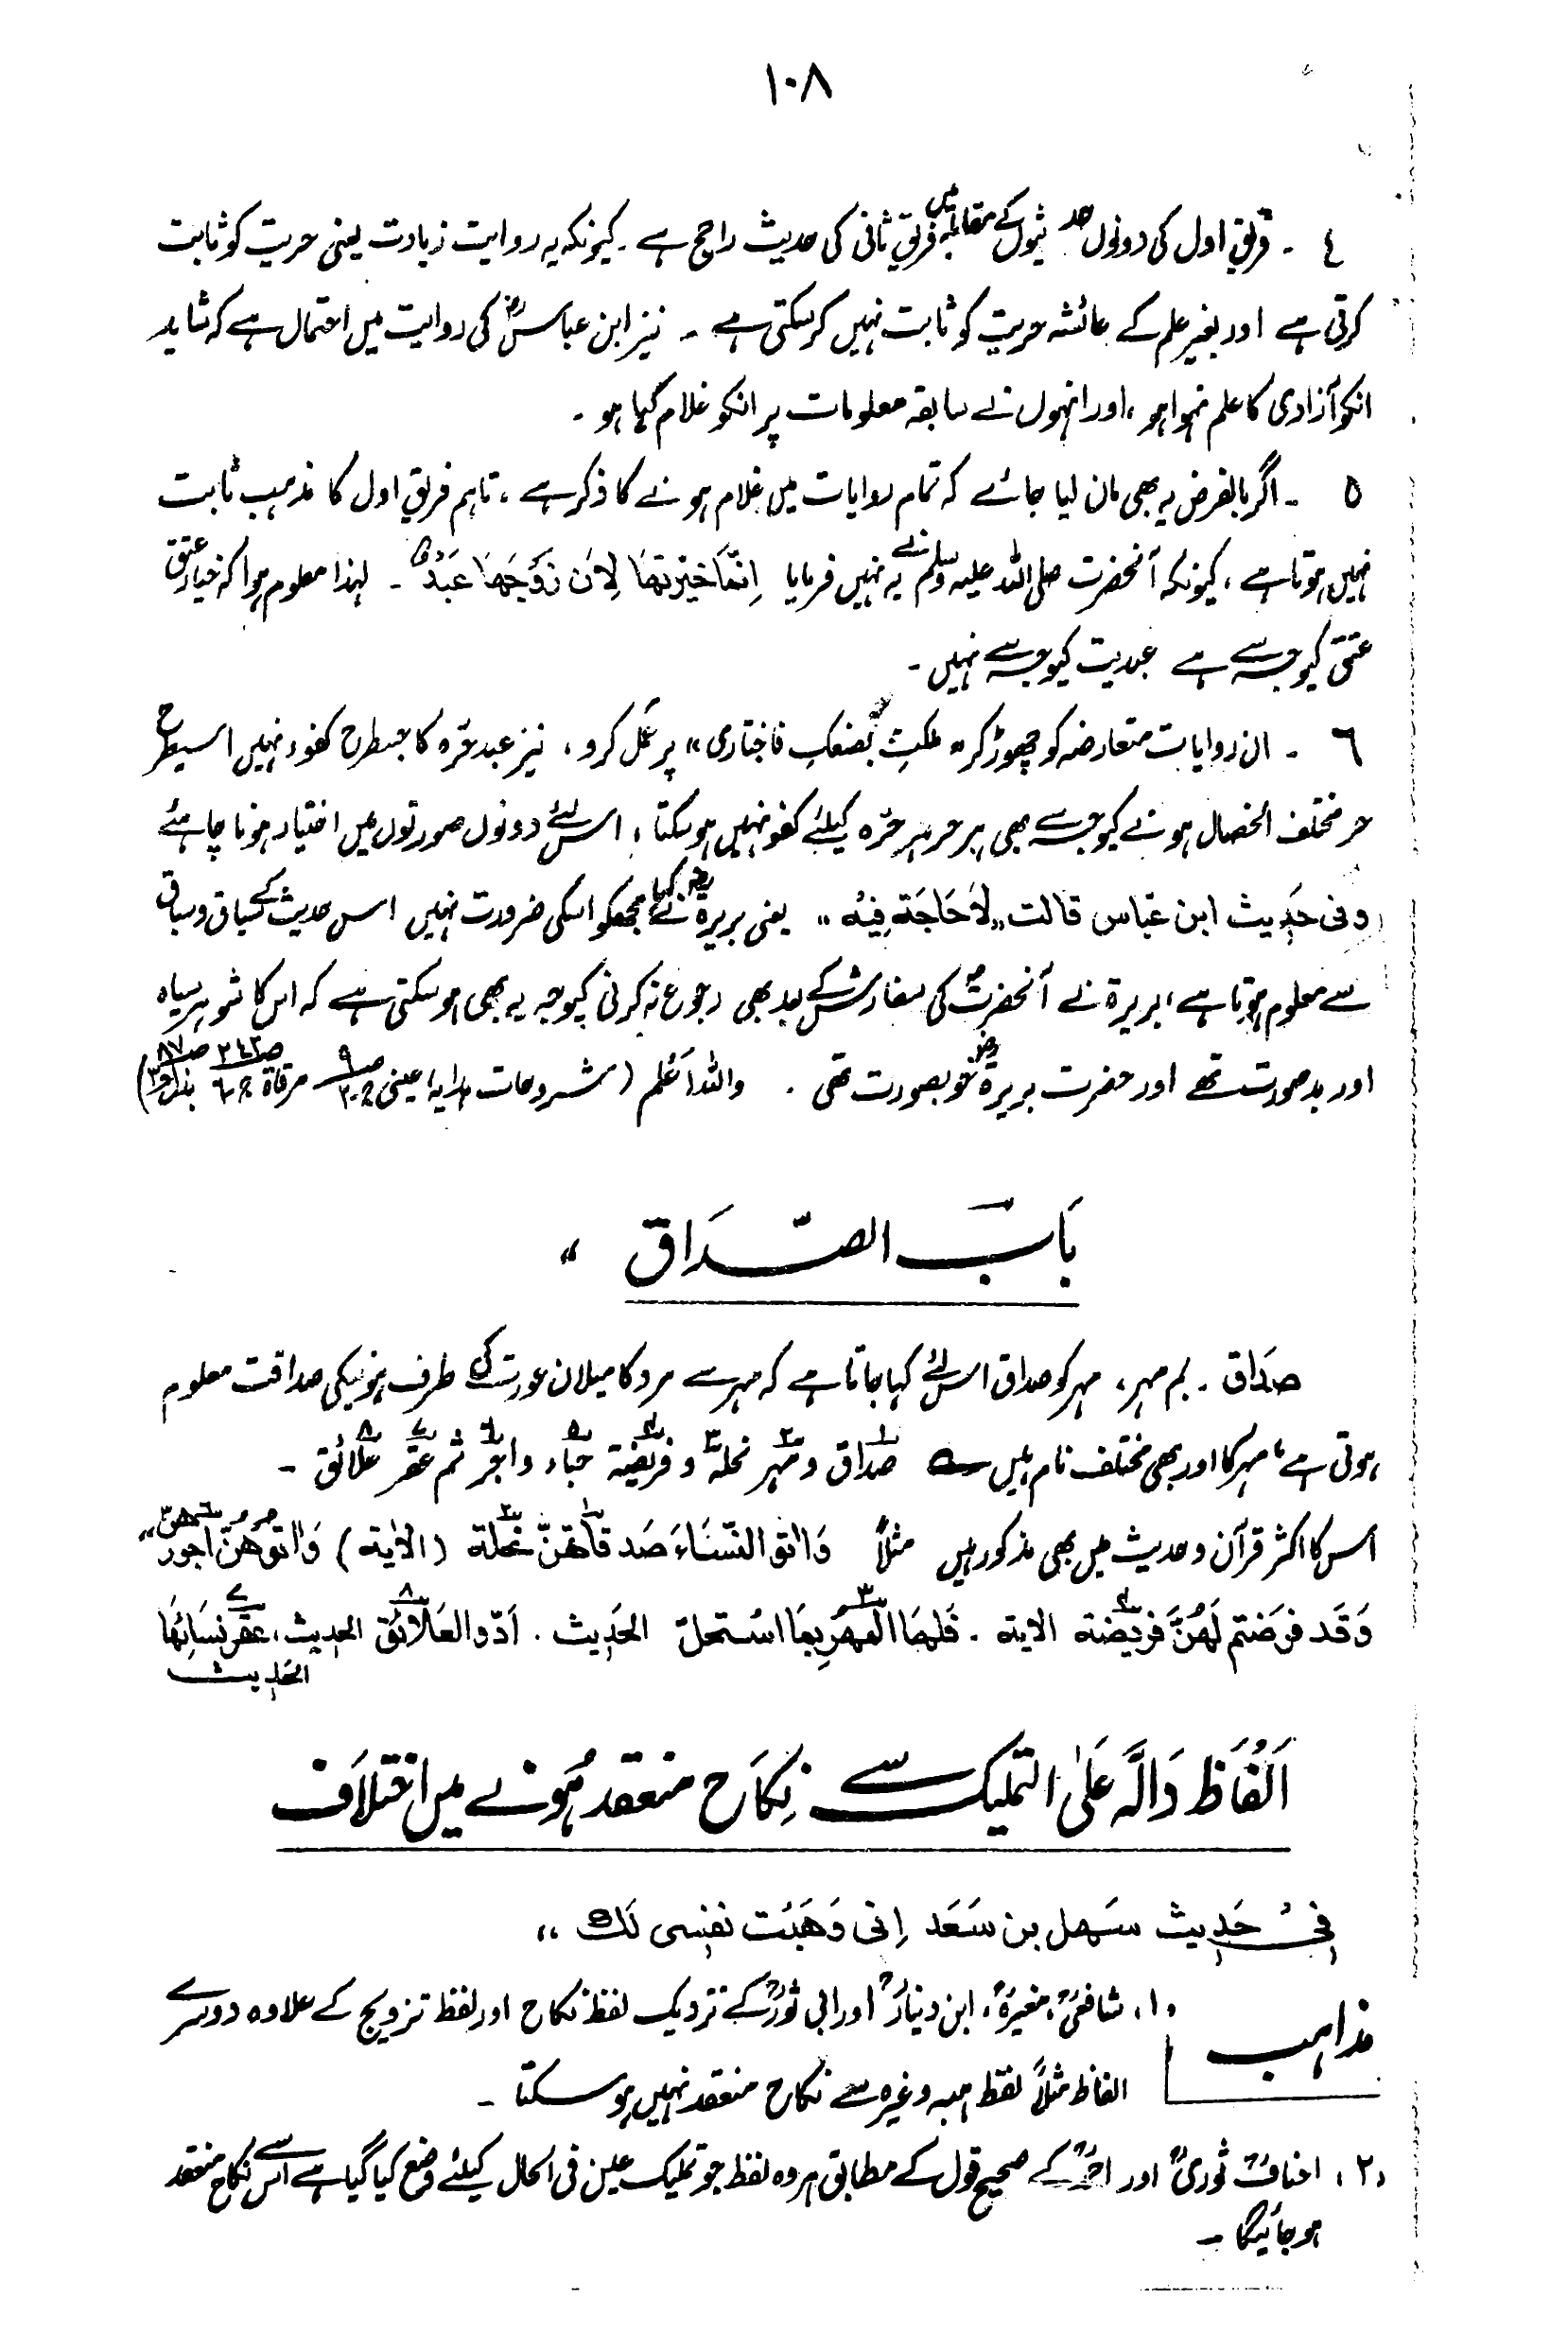 ١٠٨
٤ ۔ فریق اول کی دونوں حدیثوں کے مقابلہ میں فریق ثانی کی حدیث راجح ہے ۔ کیونکہ یہ روایت زیادت یعنی حریت کو ثابت
کرتی ہے اور بغیر علم کے عائشہ حریت کو ثابت نہیں کرسکتی ہے ۔ نیز ابن عباسؓ کی روایت میں احتمال ہے کہ شاید
انکو آزادی کا علم نہوا ہو ، اور انہوں نے سابقہ معلومات پر انکو غلام کہا ہو ۔
٥ ۔ اگر بالفرض یہ بھی مان لیا جائے کہ تمام روایات میں غلام ہونے کا ذکر ہے ، تاہم فریق اول کا مذہب ثابت
نہیں ہوتا ہے ، کیونکہ آنحضرت صلی اللہ علیہ وسلم نے یہ نہیں فرمایا اِنّمَا خَیّرتھَا لِاَن زَوْجَھَا عَبْدٌ ۔ لہذا معلوم ہوا کہ خیار عتق
عتق کیوجہ سے ہے عبدیت کیوجہ سے نہیں ۔
٦ ۔ ان روایات متعارضہ کو چھوڑ کر " ملکتِ بضعکِ فاختاری " پر عمل کرو ، نیز عبد حرّہ کا جسطرح کفو نہیں اسیطرح
حر مختلف الخصال ہونے کیوجہ سے بھی ہر حر ہر حرّہ کیلئے کفو نہیں ہوسکتا ، اس لئے دونوں صورتوں میں اختیار ہونا چاہئے
وفی حَدِیث ابن عَبّاس قالت " لَا حَاجَة فِیْه " یعنی بریرۃؓ نے کہا مجھکو اسکی ضرورت نہیں اس حدیث کے سیاق وسباق
سے معلوم ہوتا ہے ، بریرۃ نے آنحضرتؐ کی سفارش کے بعد بھی رجوع نہ کرنی کیوجہ یہ بھی ہوسکتی ہے کہ اس کا شوہر سیاہ
اور بدصورت تھے اور حضرت بریرۃؓ خوبصورت تھی ۔ واللہ اَعلم ( شروحات ہدایہ ، عینی مرقاۃ )
بَابُ الصّدَاق "
صَدَاق ۔ بم مہر ، مہر کو صداق اس لئے کہا جاتا ہے کہ مہر سے مرد کا میلان عورت کی طرف ہونیکی صداقت معلوم
ہوتی ہے ، مہر کا اور بھی مختلف نام ہیں ؎ صَداق ومَہر نحلہ وفریضة حباء واجر ثم عقر علائق ۔
اس کا اکثر قرآن وحدیث میں بھی مذکور ہیں مثلاً وَاٰتو النّسَاءَ صَدقاتهنّ نحلة (الاٰیة) وَاٰتوهنّ اُجورهنّ "
وَقَد فرَضتم لَهُنَّ فرِیضة الایة ۔ فَلهَا المَهرُ بِمَا اسْتحلّ الحَدِیث ۔ اَدّوا العَلَائق الحدیث ، عقر نِسَائِهَا
الحَدِیث
اَلْفَاظ دَالَّہ عَلیٰ التملیک سے نِکاح منعقد ہُونے میں اختلاف
فِیْ حَدِیث سَهل بن سَعَد اِنی وَهَبْت نفسِی لَك "
مذاہب
(۱) شافعیؒ ، مغیرہؒ ، ابن دینارؒ اور ابی ثورؒ کے نزدیک لفظ نکاح اور لفظ تزویج کے علاوہ دوسرے
الفاظ مثلاً لفظ ہبہ وغیرہ سے نکاح منعقد نہیں ہوسکتا ۔
(۲) احنافؒ ثوریؒ اور احمدؒ کے صحیح قول کے مطابق ہر وہ لفظ جو تملیک عین فی الحال کیلئے وضع کیا گیا ہے اس سے نکاح منعقد
ہوجائیگا ۔